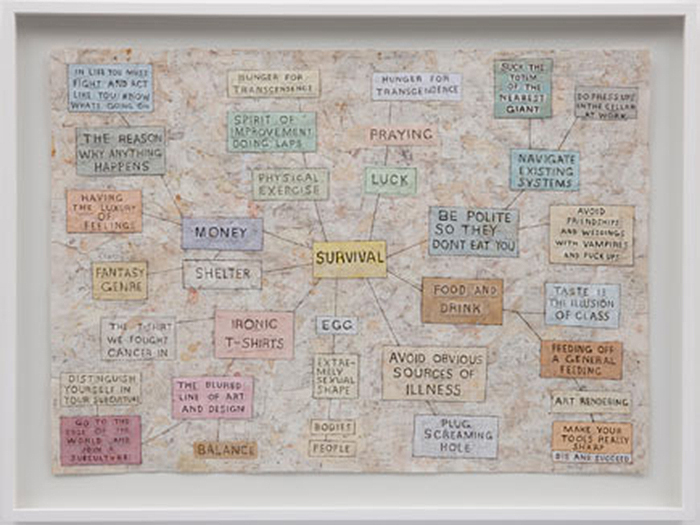 IN LIFE YOU MUST
FIGHT AND ACT
LIKE YOU KNOW
WHATS GOING ON
THE REASON
WHY ANYTHING
HAPPENS
HAVING
THE LUXURY
OF
FEELINGS
FANTASY
GENRE
MONEY
SHELTER
THE T-SHIRT
WE FOUGHT
CANCER IN
IRONIC
T-SHIRTS
DISTINGUISH
YOURSELF IN
YOUR SUBCULTURE
THE BLURED
LINE OF ART
AND DESIGN
GO TO THE
EDGE OF THE
WORLD AND
JOIN A
SUBCULTURE
BALANCE
HUNGER FOR
TRANSCENDENCE
SPIRIT OF
IMPROVEMENT
DOING LAPS
PHYSICAL
EXERCISE
HUNGER FOR
TRANSCENDENCE
PRAYING
LUCK
SURVIVAL
EGG
EXTRE-
MELY
SEXUAL
SHAPE
BODIES
PEOPLE
SUCK THE
TOTEM
OF THE
NEAREST
GIANT
DO PRESS UPS
IN THE CELLAR
AT WORK
NAVIGATE
EXISTING
SYSTEMS
BE POLITE
SO THEY
DONT EAT YOU
AVOID
FRIENDSHIPS
AND WEDDINGS
WITH VAMPIRES
AND FUCK UPS
FOOD AND
DRINK
TASTE IS
THE ILLUSION
OF CLASS
FEEDING OFF
A GENERAL
FEEDING
ART RENDERING
MAKE YOUR
TOOLS REALLY
SHARP
DIE AND SUCCEED
AVOID OBVIOUS
SOURCES OF
ILLNESS
PLUG
SCREAMING
HOLE